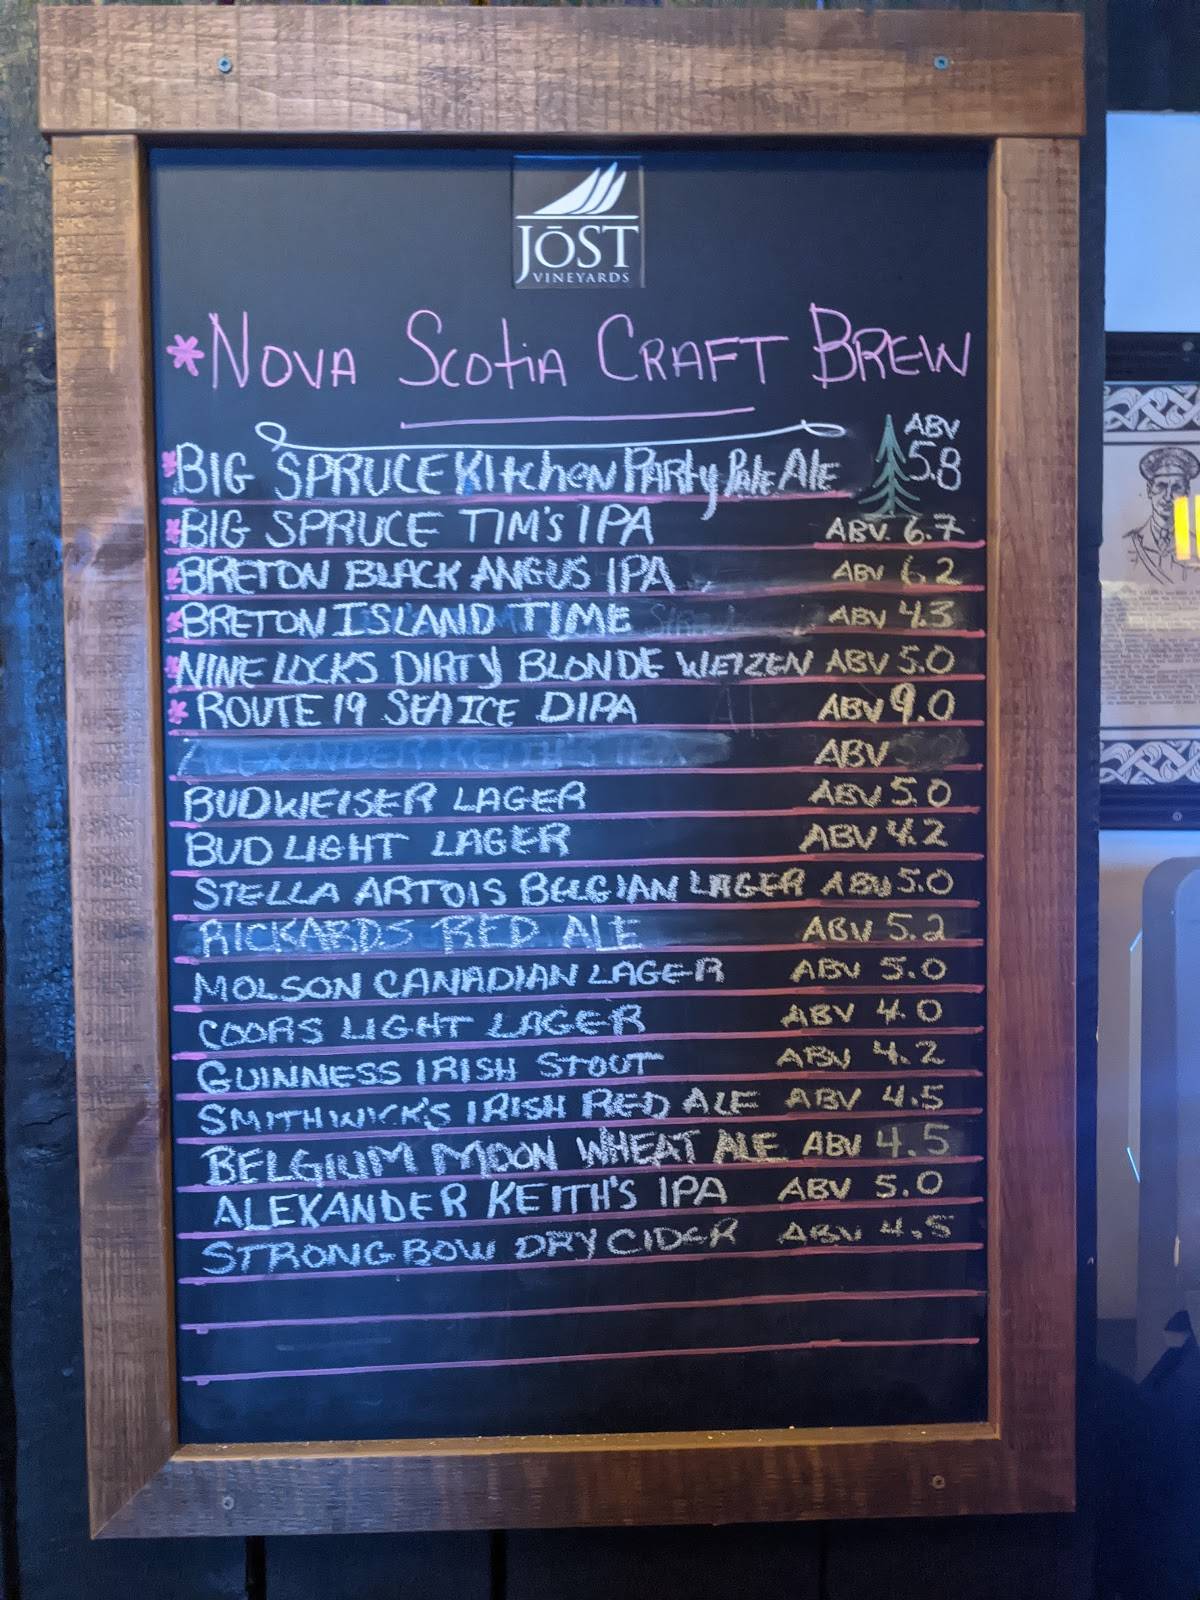 JōST
VINEYARDS
*NOVA SCOTIA CRAFT BREW
ABV
*BIG SPRUCE KitchEN PARTy PALE ALE 5.8
*BIG SPRUCE TIM'S IPA ABV. 6.7
*BRETON BLACK ANGUS IPA ABV 6.2
*BRETON ISLAND TIME ABV 4.3
*NINE LOCKS DIRTY BLONDE WEIZEN ABV 5.0
*ROUTE 19 SEA ICE DIPA ABV 9.0
ABV
BUDWEISER LAGER ABV 5.0
BUD LIGHT LAGER ABV 4.2
STELLA ARTOIS BELGIAN LAGER ABV 5.0
RICKARDS RED ALE ABV 5.2
MOLSON CANADIAN LAGER ABV 5.0
COORS LIGHT LAGER ABV 4.0
GUINNESS IRISH STOUT ABV 4.2
SMITHWICK'S IRISH RED ALE ABV 4.5
BELGIUM MOON WHEAT ALE ABV 4.5
ALEXANDER KEITH'S IPA ABV 5.0
STRONGBOW DRY CIDER ABV 4.5